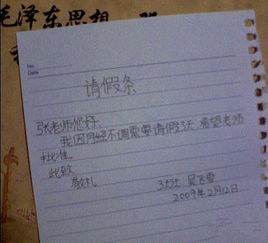 毛泽东思想
No.
Date
请假条
张老师您好:
我因月经不调需要请假3天,希望老师
批准.
此致
敬礼
2009年2月12日